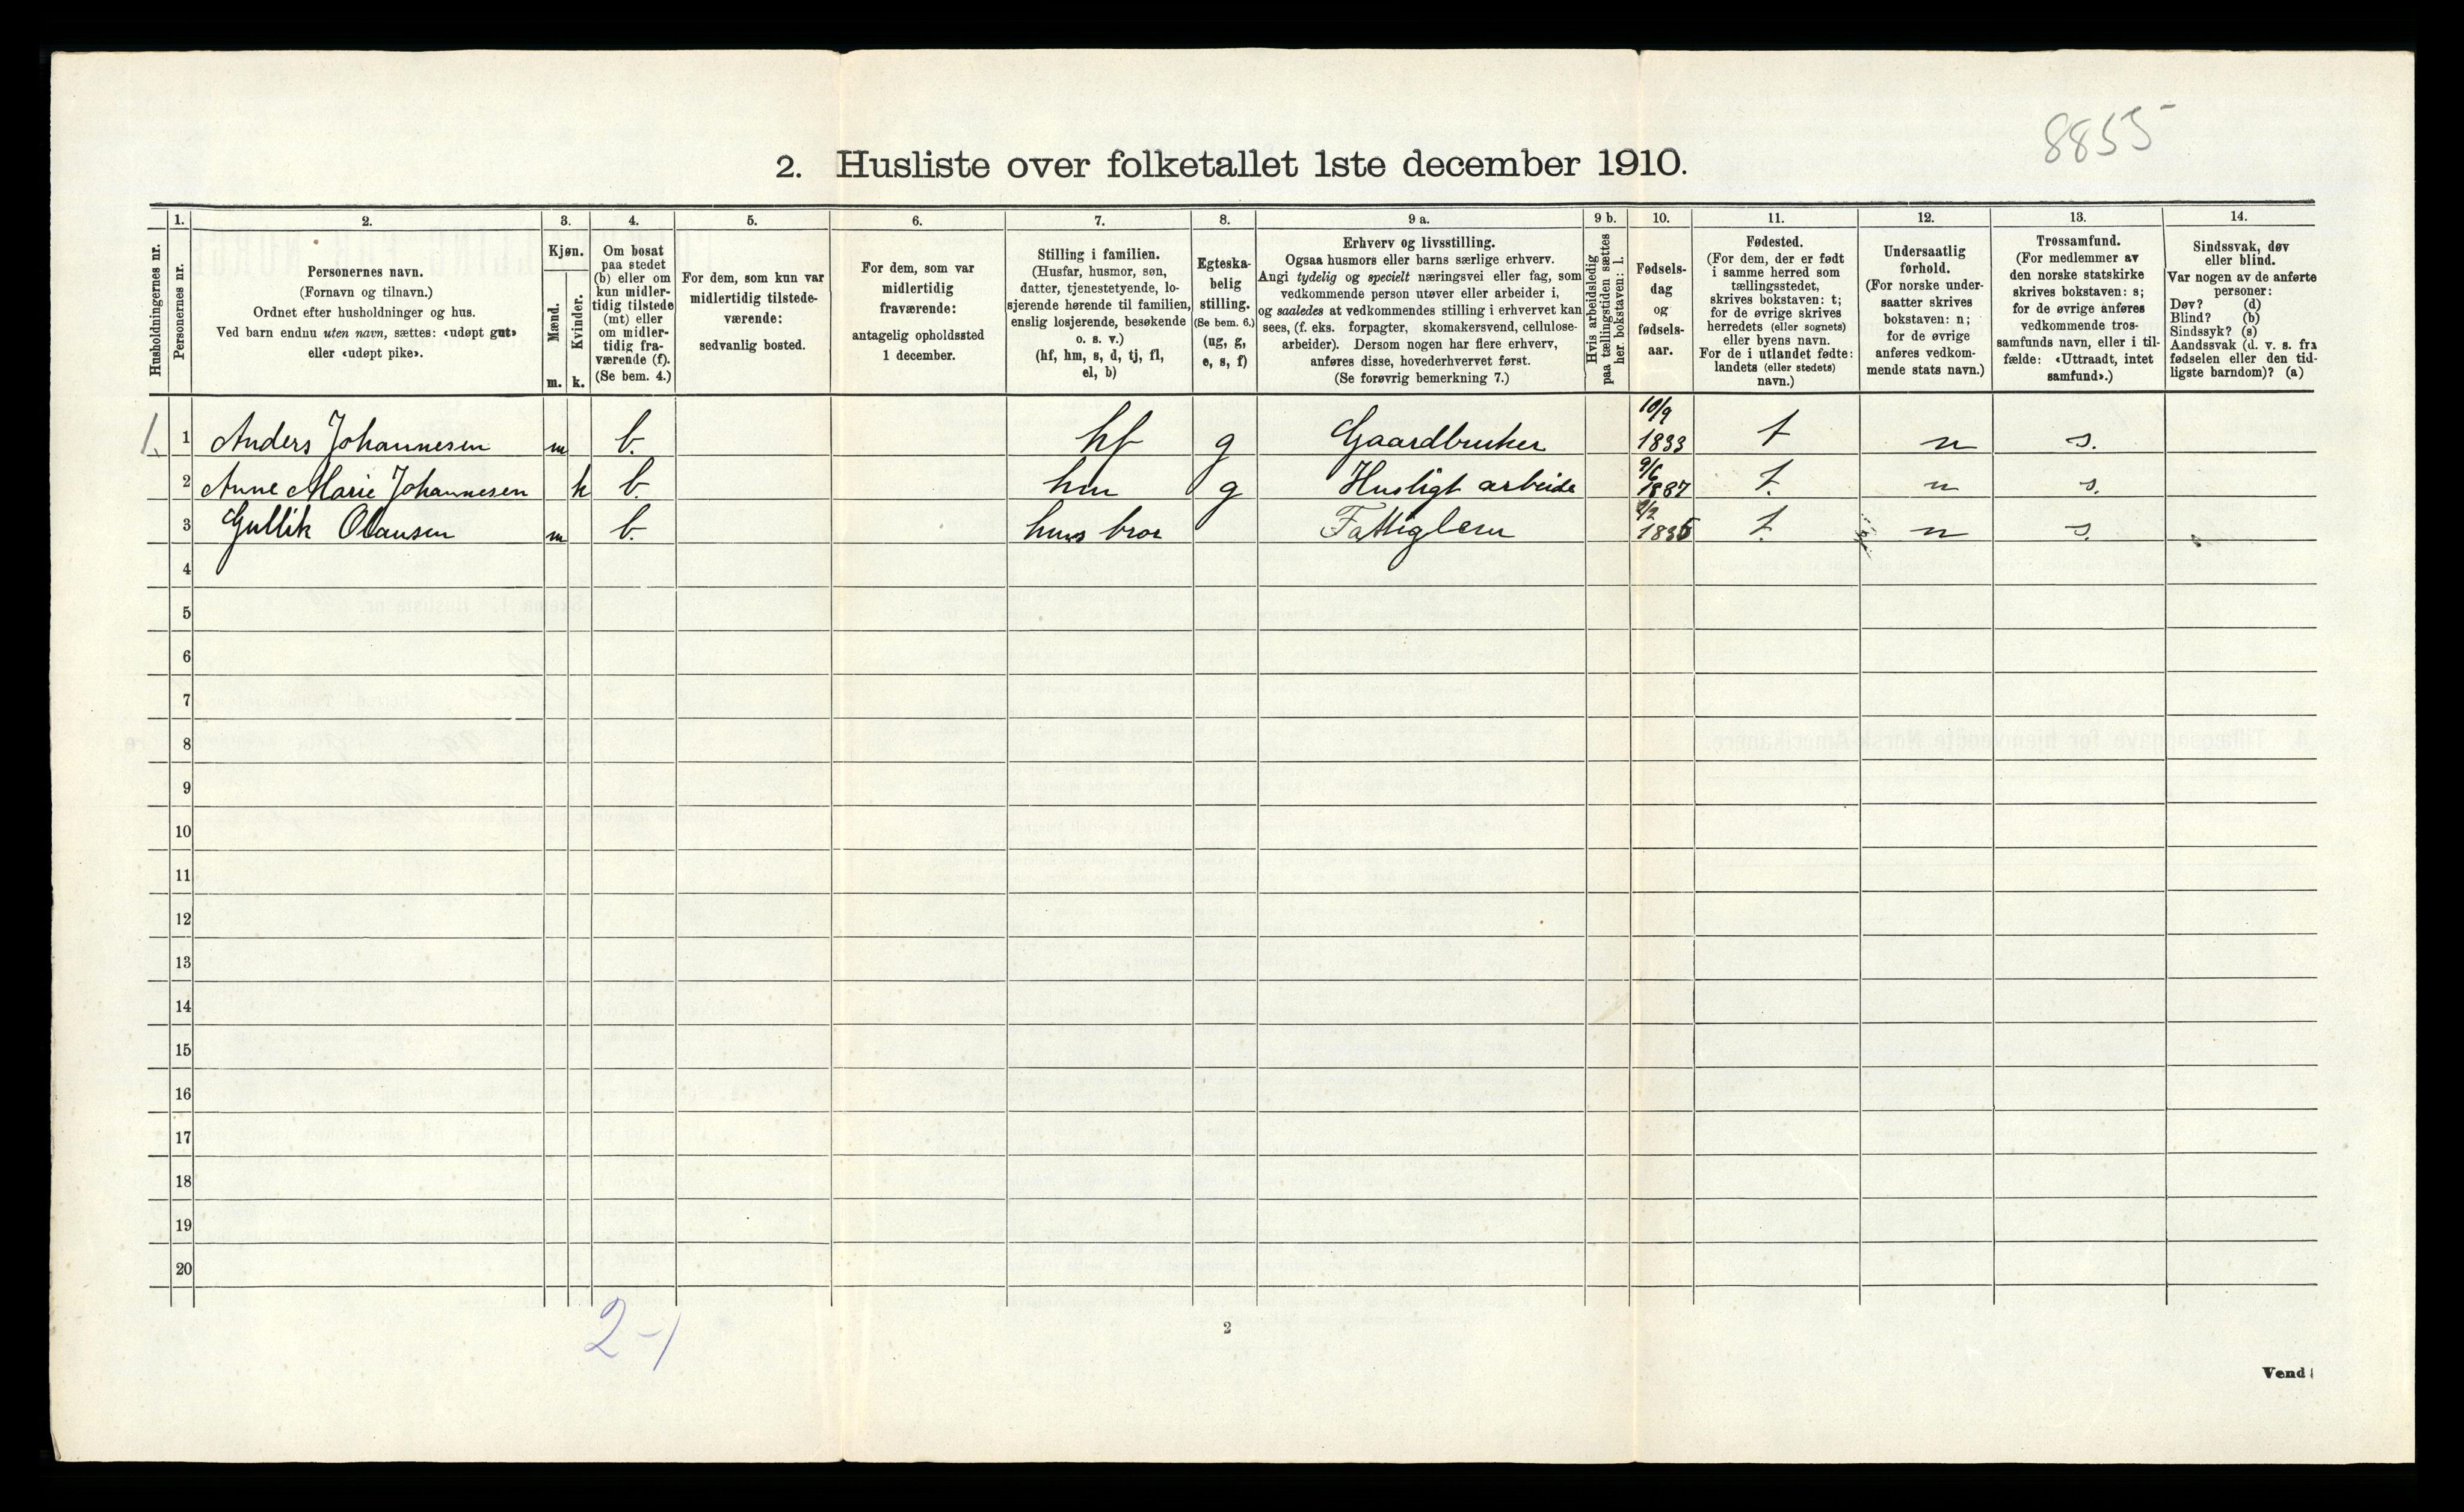 8855
2. Husliste over folketallet 1ste december 1910.
Husholdningernes nr.
1.
Personernes nr.
2.
Personernes navn.
(Fornavn og tilnavn.)
Ordnet efter husholdninger og hus.
Ved barn endnu uten navn, sættes: «udøpt gut»
eller «udøpt pike».
3.
Kjøn.
Mænd.
Kvinder.
m. k.
4.
Om bosat
paa stedet
(b) eller om
kun midler-
tidig tilstede
(mt) eller
om midler-
tidig fra-
værende (f).
(Se bem. 4.)
5.
For dem, som kun var
midlertidig tilstede-
værende:
sedvanlig bosted.
6.
For dem, som var
midlertidig
fraværende:
antagelig opholdssted
1 december.
7.
Stilling i familien.
(Husfar, husmor, søn,
datter, tjenestetyende, lo-
sjerende hørende til familien,
enslig losjerende, besøkende
o. s. v.)
(hf, hm, s, d, tj, fl,
el, b)
8.
Egteska-
belig
stilling.
(Se bem. 6.)
(ug, g,
e, s, f)
9 a.
Erhverv og livsstilling.
Ogsaa husmors eller barns særlige erhverv.
Angi tydelig og specielt næringsvei eller fag, som
vedkommende person utøver eller arbeider i,
og saaledes at vedkommendes stilling i erhvervet kan
sees, (f. eks. forpagter, skomakersvend, cellulose-
arbeider). Dersom nogen har flere erhverv,
anføres disse, hovederhvervet først.
(Se forøvrig bemerkning 7.)
9 b.
Hvis arbeidsledig
paa tællingstiden sættes
her bokstaven: l.
10.
Fødsels-
dag
og
fødsels-
aar.
11.
Fødested.
(For dem, der er født
i samme herred som
tællingsstedet,
skrives bokstaven: t;
for de øvrige skrives
herredets (eller sognets)
eller byens navn.
For de i utlandet fødte:
landets (eller stedets)
navn.)
12.
Undersaatlig
forhold.
(For norske under-
saatter skrives
bokstaven: n;
for de øvrige
anføres vedkom-
mende stats navn.)
13.
Trossamfund.
(For medlemmer av
den norske statskirke
skrives bokstaven: s;
for de øvrige anføres
vedkommende tros-
samfunds navn, eller i til-
fælde: «Uttraadt, intet
samfund».)
14.
Sindssvak, døv
eller blind.
Var nogen av de anførte
personer:
Døv? (d)
Blind? (b)
Sindssyk? (s)
Aandssvak (d. v. s. fra
fødselen eller den tid-
ligste barndom)? (a)
1. 1 Anders Johannesen m b. hf g Gaardbruker 10/9 1833 t n s.
2 Anne Marie Johannesen k b. hm g Husligt arbeide 9/6 1887 t. n s.
3 Gullik Olausen m b. hms bror Fattiglem t. n s.
4
5
6
7
8
9
10
11
12
13
14
15
16
17
18
19
20
2-1
2
Vend!